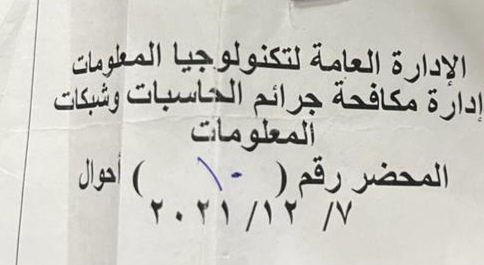 الإدارة العامة لتكنولوجيا المعلومات
إدارة مكافحة جرائم الحاسبات وشبكات
المعلومات
المحضر رقم ( ١٠ ) أحوال
٧/ ١٢ /٢٠٢١